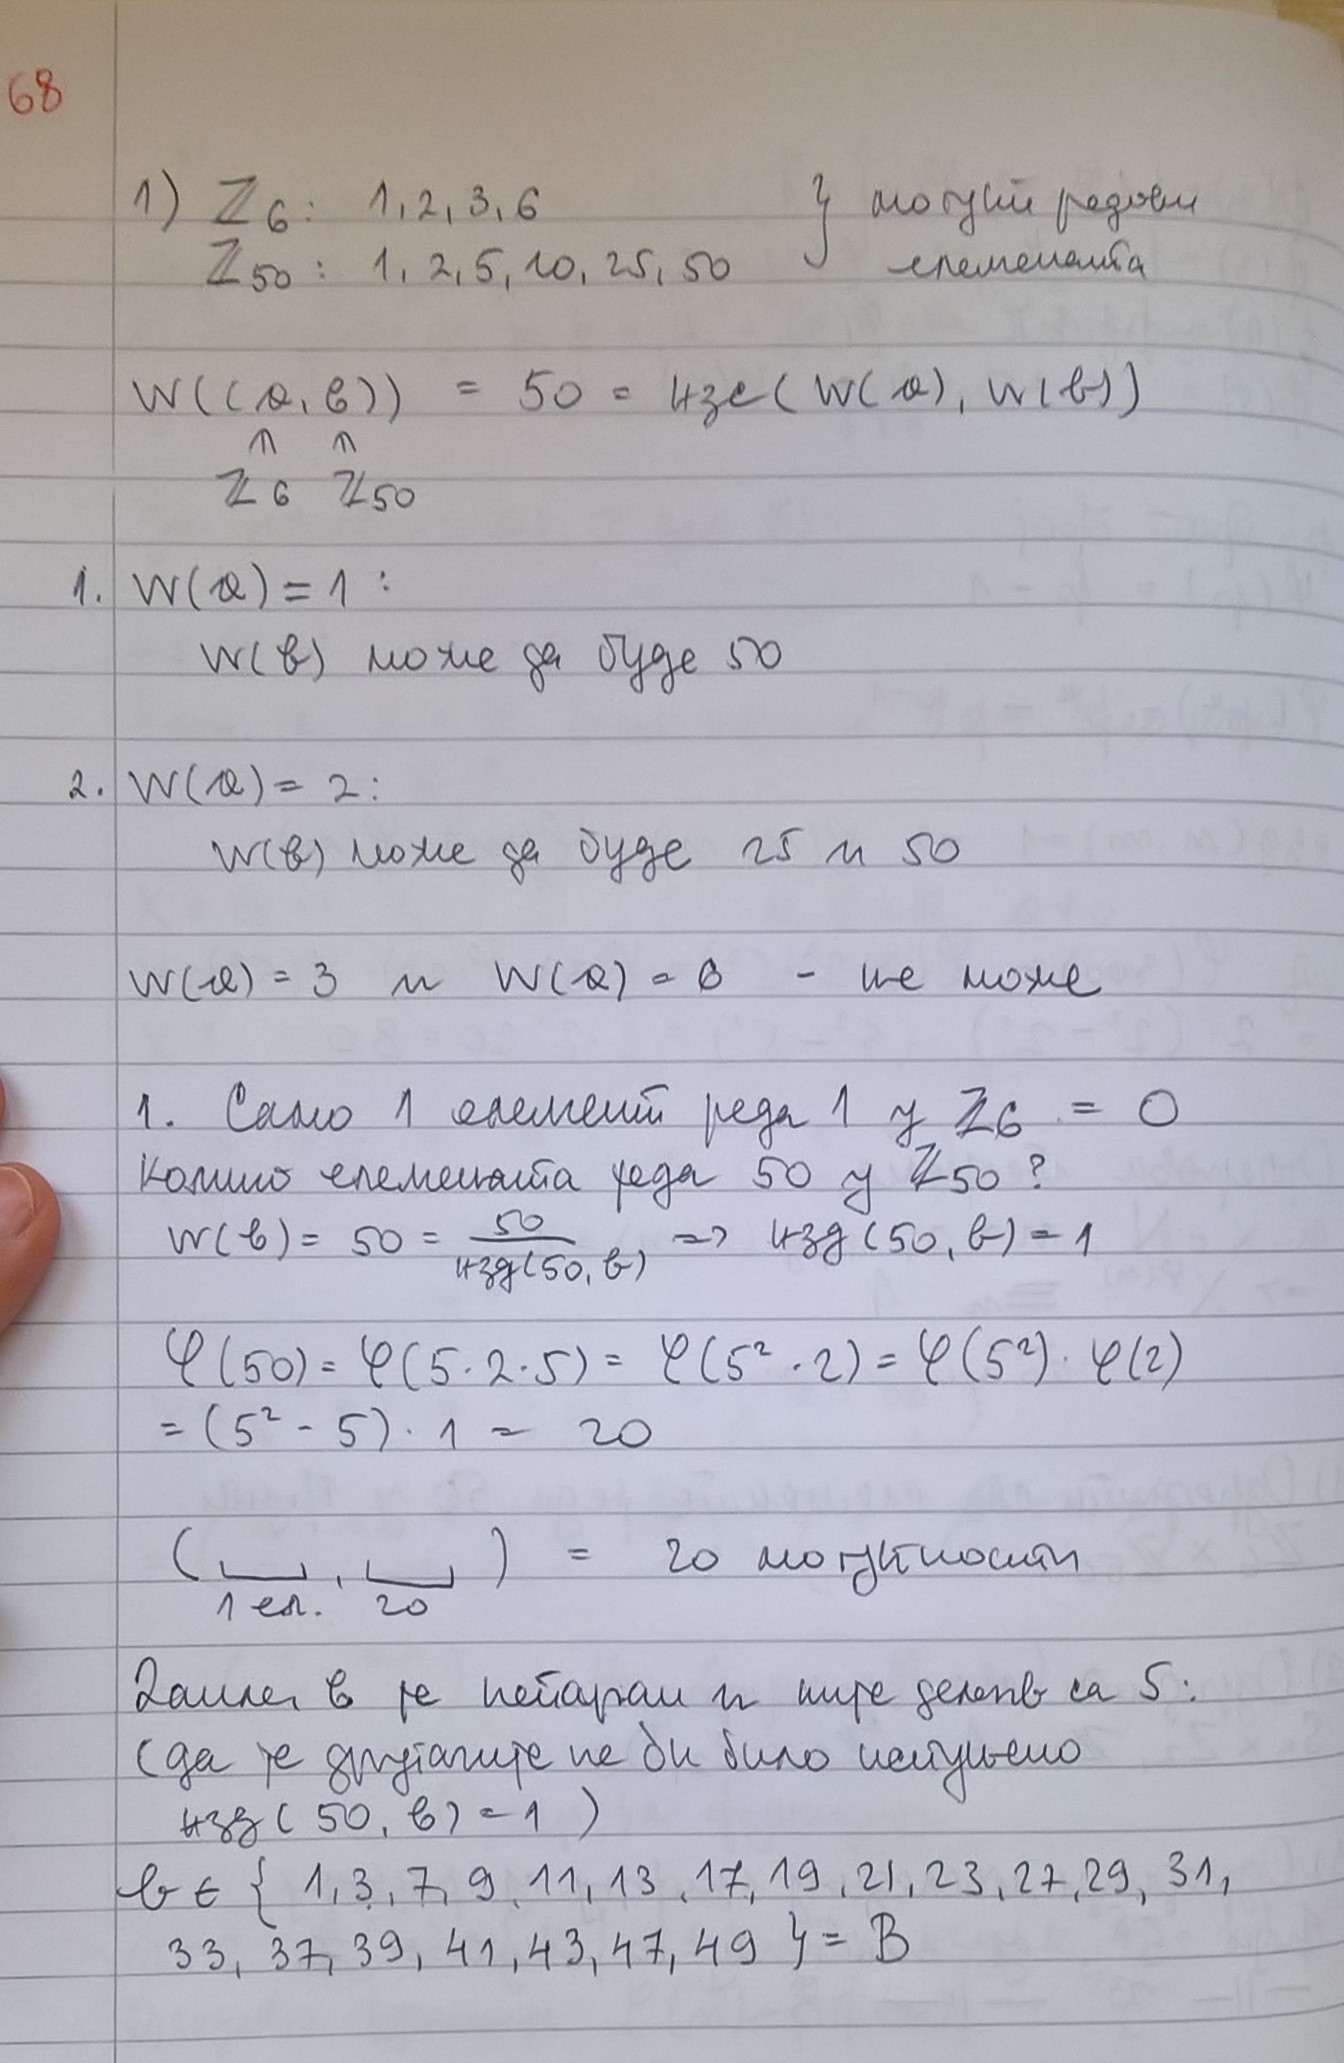 68
1) ℤ6 : 1, 2, 3, 6 } могући редови
ℤ50 : 1, 2, 5, 10, 25, 50 елемената
W((a, b)) = 50 = нзс(W(a), W(b))
∩ ∩
ℤ6 ℤ50
1. W(a) = 1 :
W(b) може да буде 50
2. W(a) = 2 :
W(b) може да буде 25 и 50
W(a) = 3 и W(a) = 6 - не може
1. Само 1 елемент реда 1 у ℤ6 = 0
Колико елемената реда 50 у ℤ50 ?
W(b) = 50 = 50/нзд(50, b) => нзд(50, b) = 1
φ(50) = φ(5·2·5) = φ(5²·2) = φ(5²)·φ(2)
= (5² - 5)·1 = 20
( ⎵ , ⎵ ) = 20 могућности
1 ел. 20
b је непаран и није дељив са 5 :
(да је другачије не би било испуњено
нзд(50, b) = 1 )
b ∈ { 1, 3, 7, 9, 11, 13, 17, 19, 21, 23, 27, 29, 31,
33, 37, 39, 41, 43, 47, 49 } = B